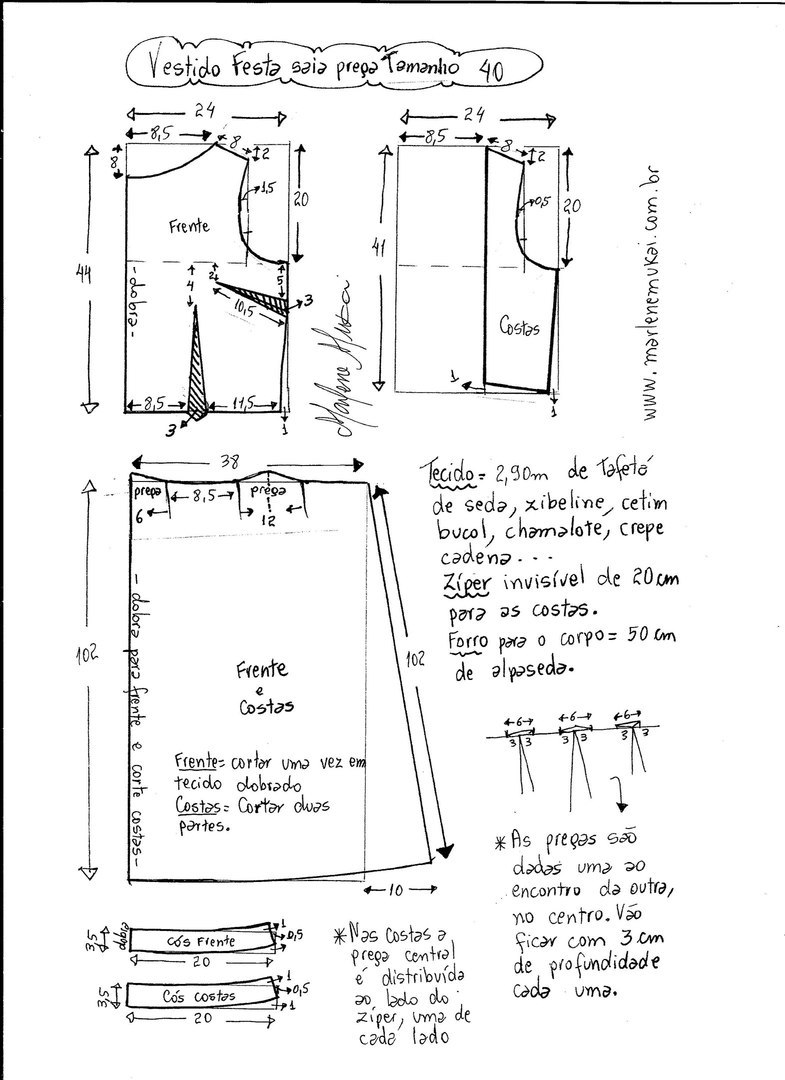 Vestido Festa saia prega Tamanho 40
24
8,5
8
2
8
1,5
20
Frente
44
- dobra -
4
2
5
3
10,5
8,5
11,5
3
1
Marlene Mukai
24
8,5
8
2
0,5
20
41
Costas
1
1
www.marlenemukai.com.br
38
prega
6
8,5
prega
12
102
102
- dobra para frente e corte costas -
Frente
e
Costas
Frente= cortar uma vez em
tecido dobrado
Costas= Cortar duas
partes.
10
Tecido= 2,90m de Tafetá
de seda, zibeline, cetim
bucol, chamalote, crepe
cadena...
Zíper invisível de 20cm
para as costas.
Forro para o corpo= 50cm
de alpaseda.
6 6 6
3 3 3 3 3 3
* As pregas são
dadas uma ao
encontro da outra,
no centro. Vão
ficar com 3cm
de profundidade
cada uma.
3,5
dobra
Cós Frente
1
0,5
1
20
3,5
Cós costas
1
0,5
1
20
* Nas Costas a
prega central
é distribuída
ao lado do
zíper, uma de
cada lado